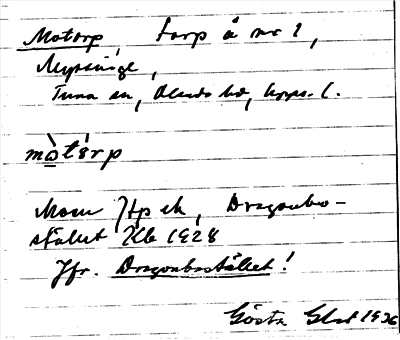 Motorp, torp å nr 1,
Myrsinge,
Tuna sn, Olands hd, Upps. l.
mòtə́rp
Mom Jtp ek, Dragonbo-
stället Klb 1928
Jfr. Dragonbostället!
Gösta 1936